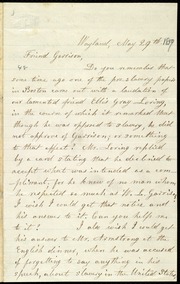 Wayland, May 29th 1879
Friend Garrison,
Do you remember that
some time ago one of the pro-slavery papers
in Boston came out with a laudation of
our lamented friend Ellis Gray Loring,
in the course of which it remarked that
though he was opposed to slavery, he did
not approve of Garrison, or something
to that effect? Mr. Loring replied
by a card stating that he declined to
accept what was intended as a com-
pliment; for he knew of no man whom
he respected so much as W. L. Garrison.
I wish I could get that notice, and
his answer to it; Can you help me
to it? I also wish I could get
his answer to Mr. Armstrong at the
English dinner, when he was accused
of forgetting to say anything in his
speech, about slavery in the United States